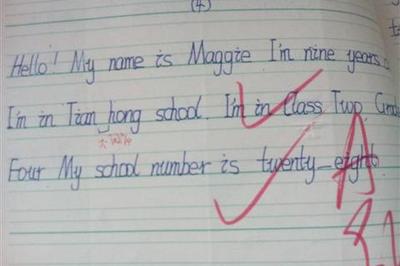 (4)
Hello! My name is Maggie I'm nine years.
I'm in Tian hong school. I'm in Class Two, Grade
Four My school number is twenty-eight.
A